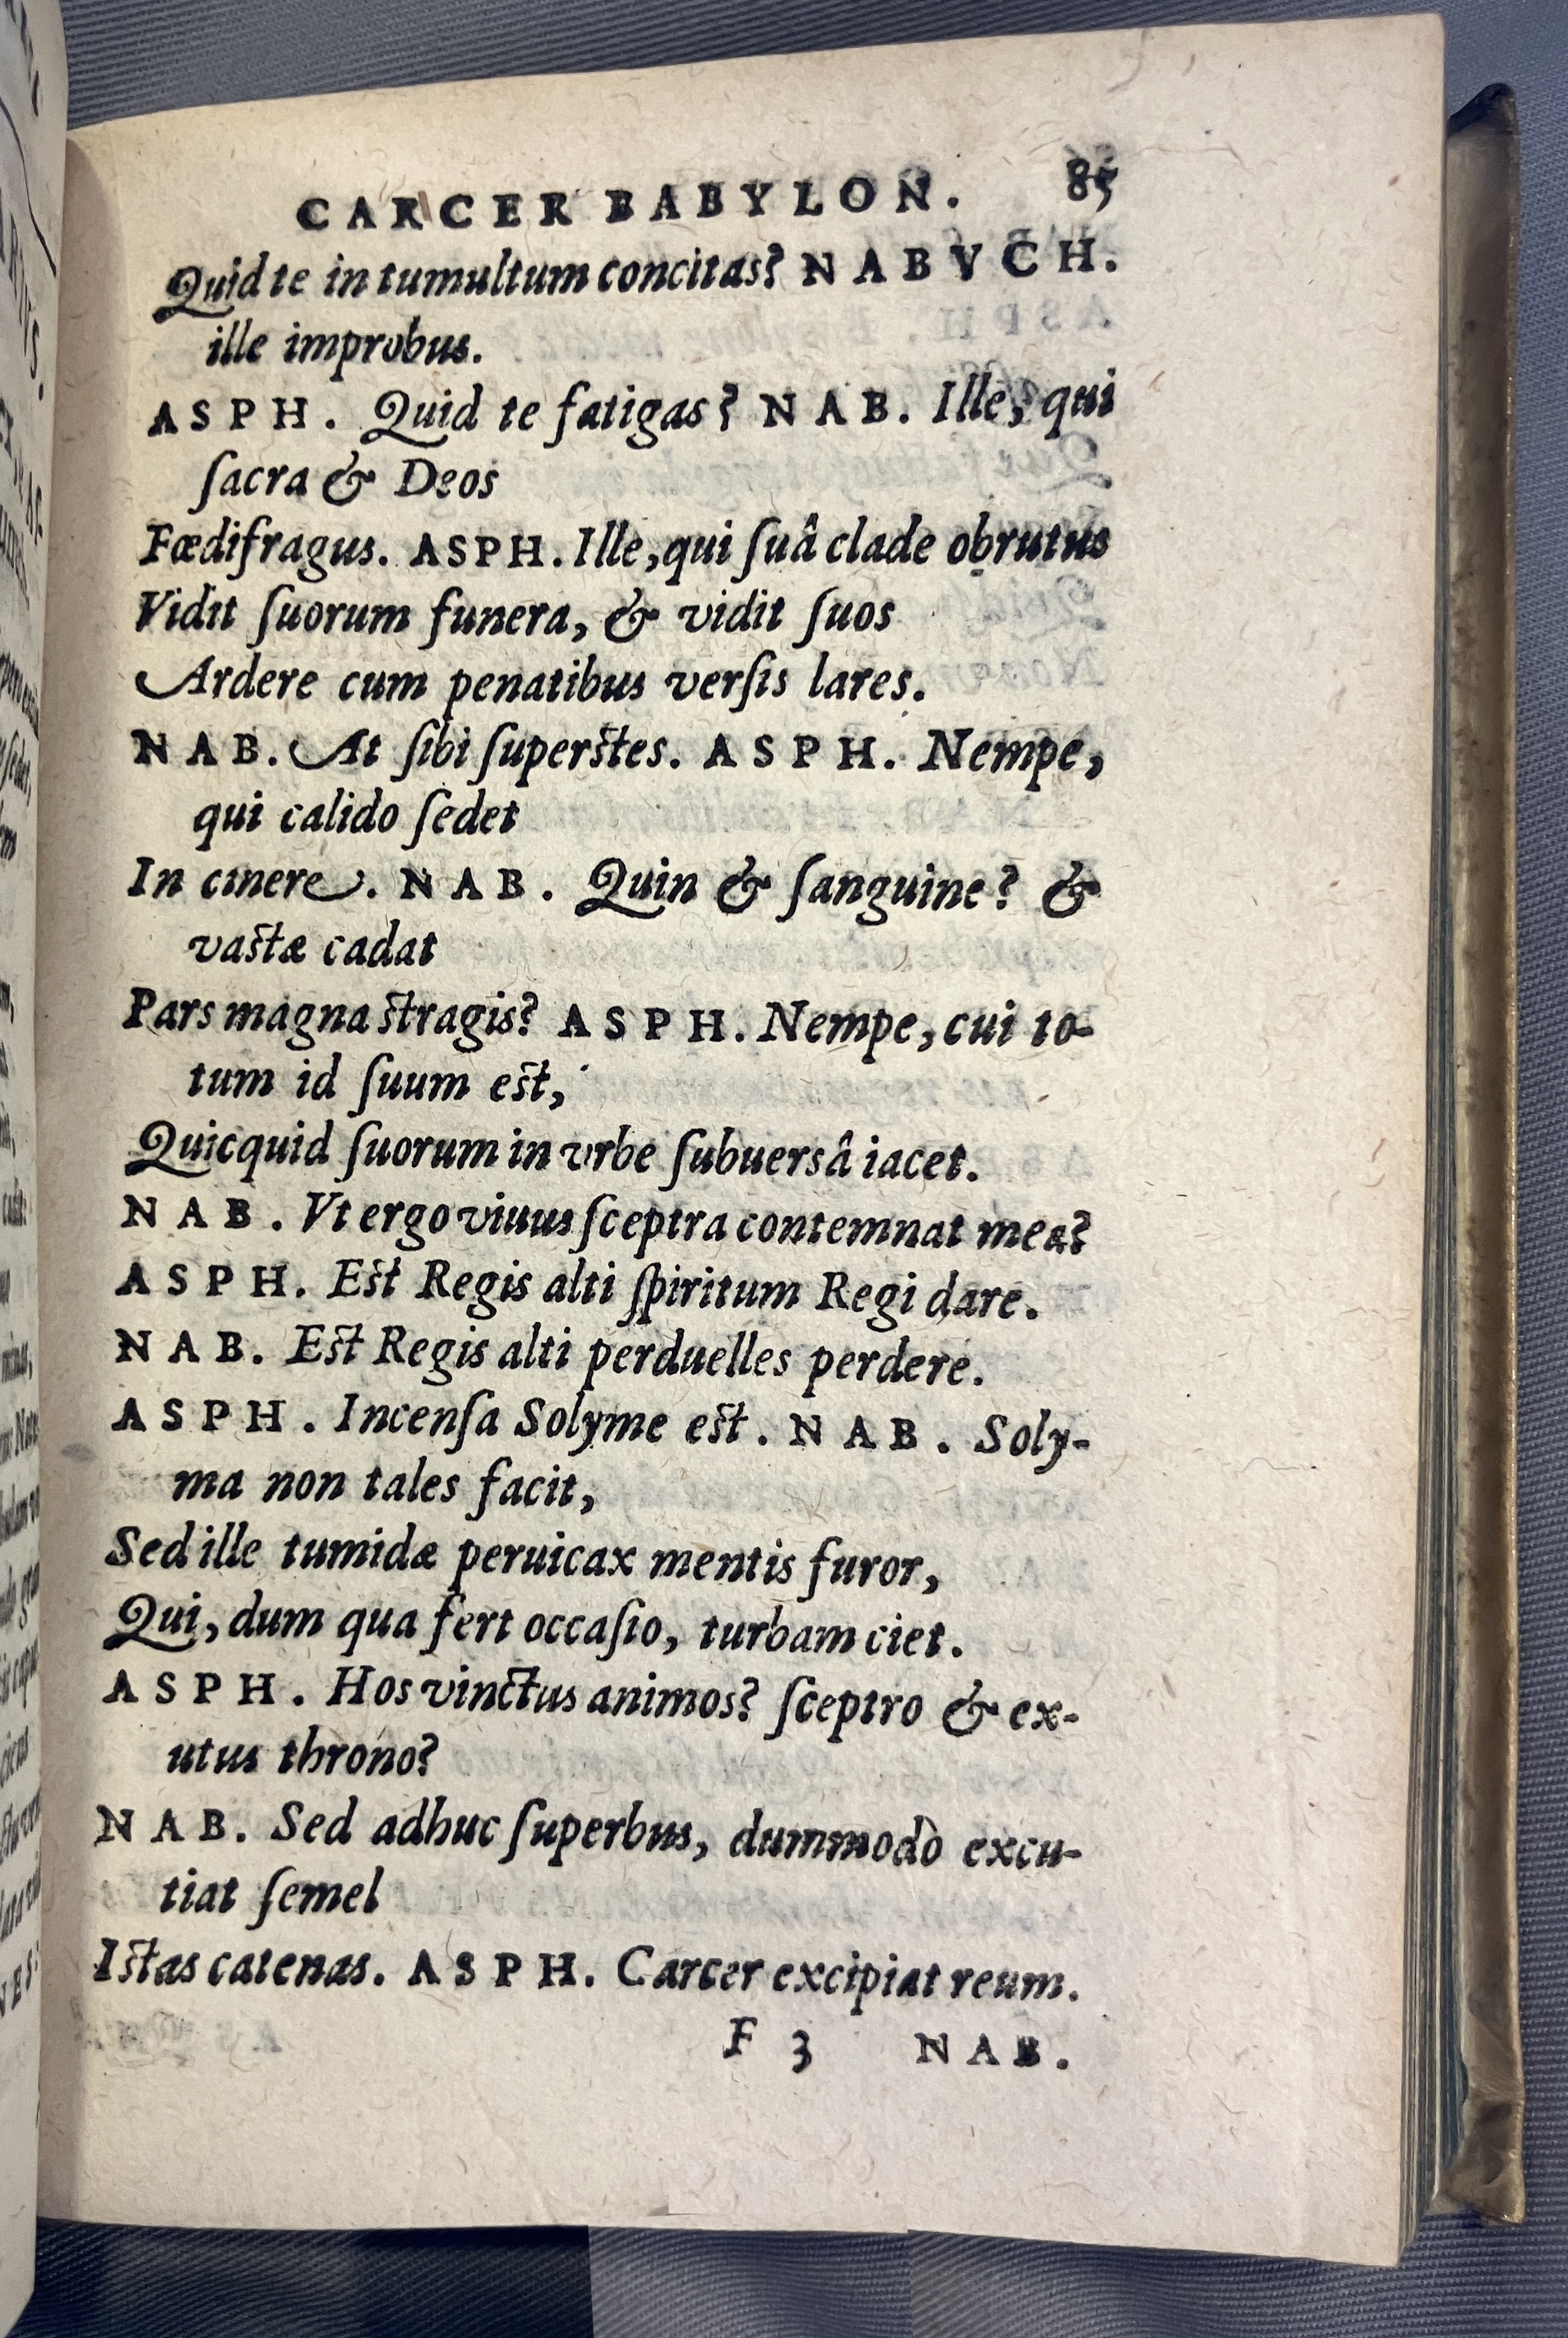 CARCER BABYLON. 85
Quid te in tumultum concitas? NABVCH.
ille improbus.
ASPH. Quid te fatigas? NAB. Ille, qui
ſacra & Deos
Fœdifragus. ASPH. Ille, qui ſuâ clade obrutus
Vidit ſuorum funera, & vidit ſuos
Ardere cum penatibus verſis lares.
NAB. At ſibi ſuperſtes. ASPH. Nempe,
qui calido ſedet
In cinere. NAB. Quin & ſanguine? &
vaſtæ cadat
Pars magna ſtragis? ASPH. Nempe, cui to-
tum id ſuum eſt,
Quicquid ſuorum in vrbe ſubuersâ iacet.
NAB. Vt ergo viuus ſceptra contemnat mea?
ASPH. Eſt Regis alti ſpiritum Regi dare.
NAB. Eſt Regis alti perduelles perdere.
ASPH. Incenſa Solyme eſt. NAB. Soly-
ma non tales facit,
Sed ille tumidæ peruicax mentis furor,
Qui, dum qua fert occaſio, turbam ciet.
ASPH. Hos vinctus animos? ſceptro & ex-
utus throno?
NAB. Sed adhuc ſuperbus, dummodò excu-
tiat ſemel
Iſtas catenas. ASPH. Carcer excipiat reum.
F 3 NAB.